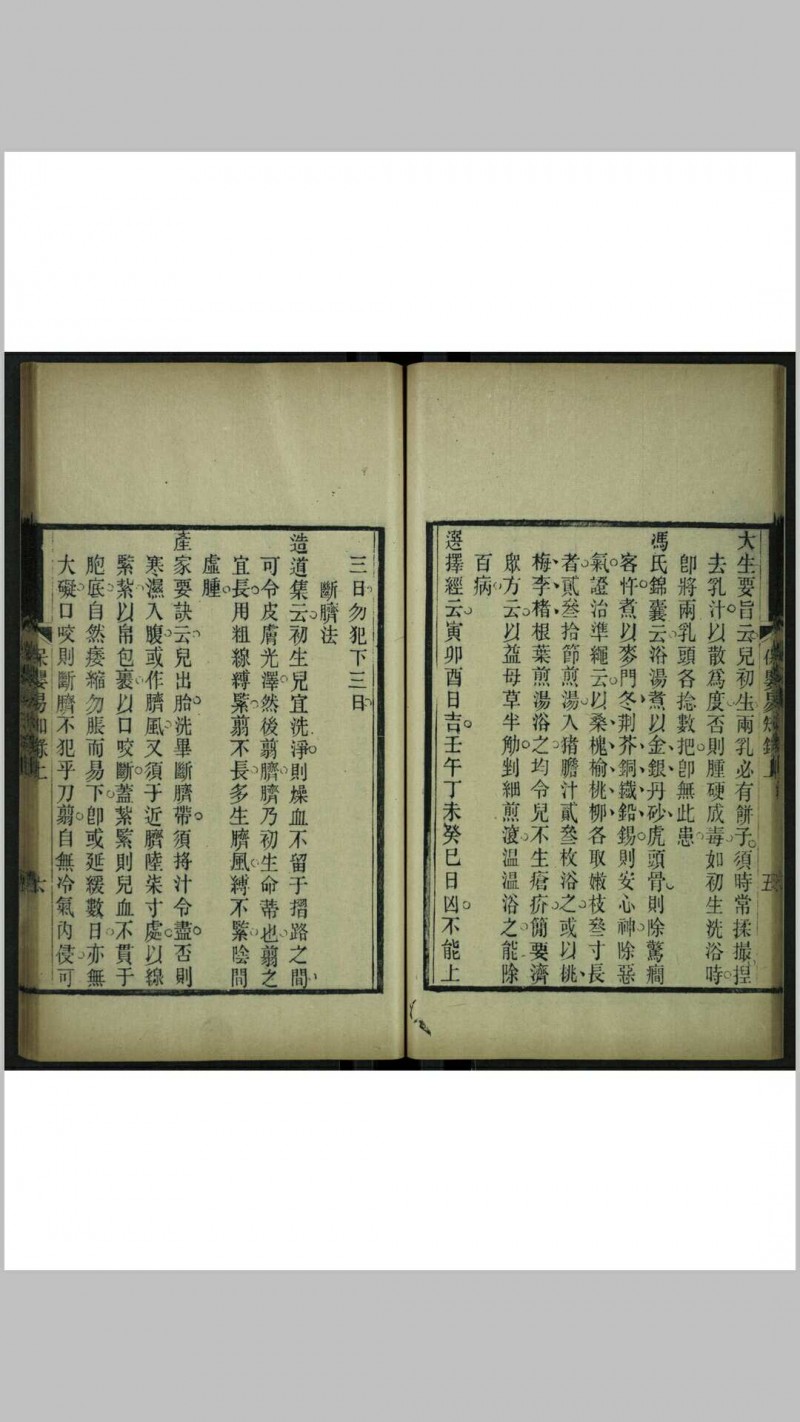 大生要旨云兒初生兩乳必有餅子須時常揉撮捏
去乳汁以散為度否則腫硬成毒如初生洗浴時
卽將兩乳頭各捻數把卽無此患
馮氏錦囊云浴湯煮以金銀丹砂虎頭骨則除驚癇
客忤煮以麥門冬荆芥銅鐵鉛錫則安心神除惡
氣證治準繩云以桑槐榆桃柳各取嫩枝叄寸長
者貳叄拾節煎湯入猪膽汁貳叄枚浴之或以桃
梅李楮根葉煎湯浴之均令兒不生瘡疥簡要濟
眾方云以益母草半觔剉細煎滾温温浴之能除
百病
選擇經云寅卯酉日吉壬午丁未癸巳日凶不能上
保嬰易知錄上
五
三日勿犯下三日
斷臍法
造道集云初生兒宜洗淨則燥血不留于摺路之間
可令皮膚光澤然後翦臍臍乃初生命蒂也翦之
宜長用粗線縛緊翦不長多生臍風縛不緊陰間
虛腫
產家要訣云兒出胎洗畢斷臍帶須捋汁令盡否則
寒濕入腹或作臍風又須于近臍陸柒寸處以線
緊紮以帛包裹以口咬斷蓋紮緊則兒血不貫于
胞底自然痿縮勿脹而易下卽或延緩數日亦無
大礙口咬則斷臍不犯乎刀翦自無冷氣內侵可
保嬰易知錄上
六